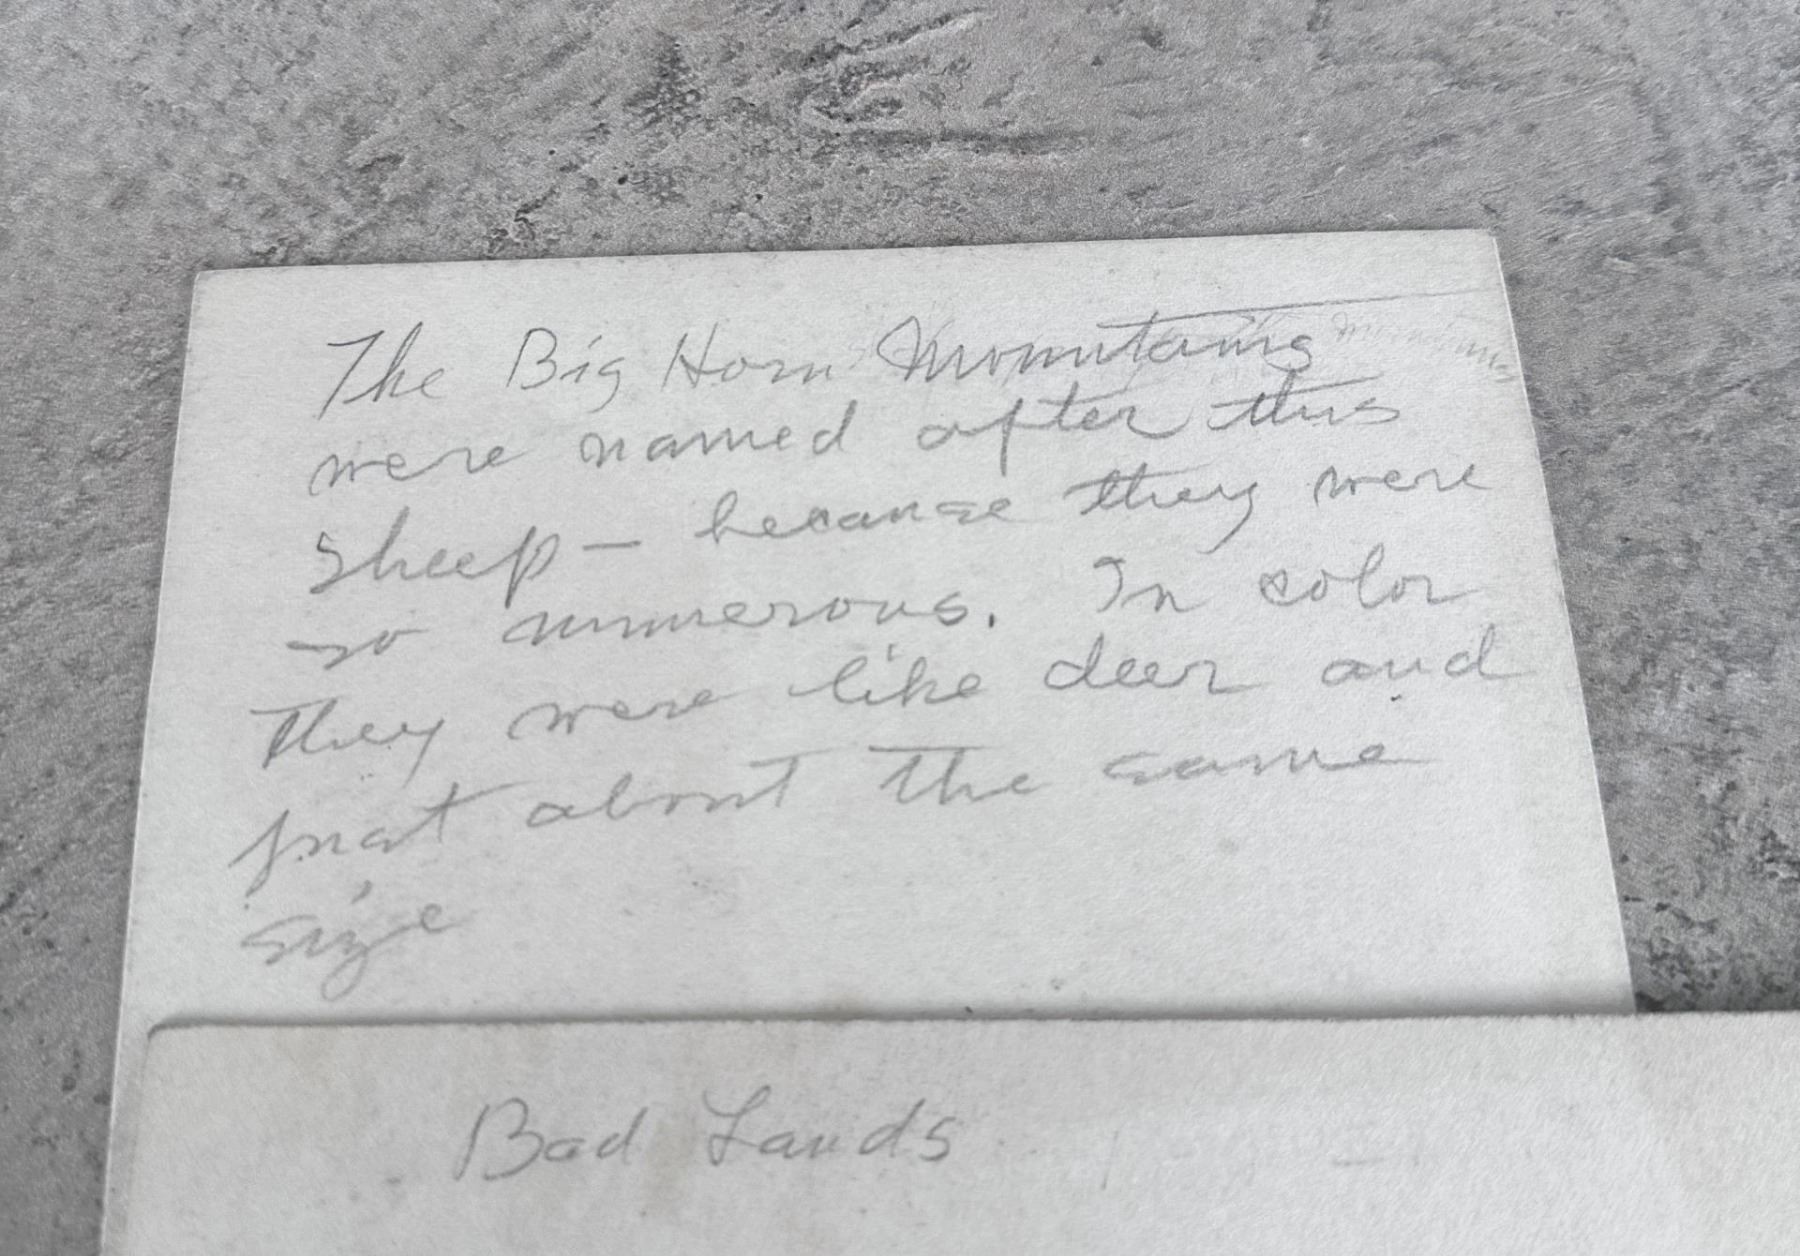 The Big Horn Mountains
were named after this
sheep — because they were
so numerous. In color
they were like deer and
just about the same
size
Bad Lands